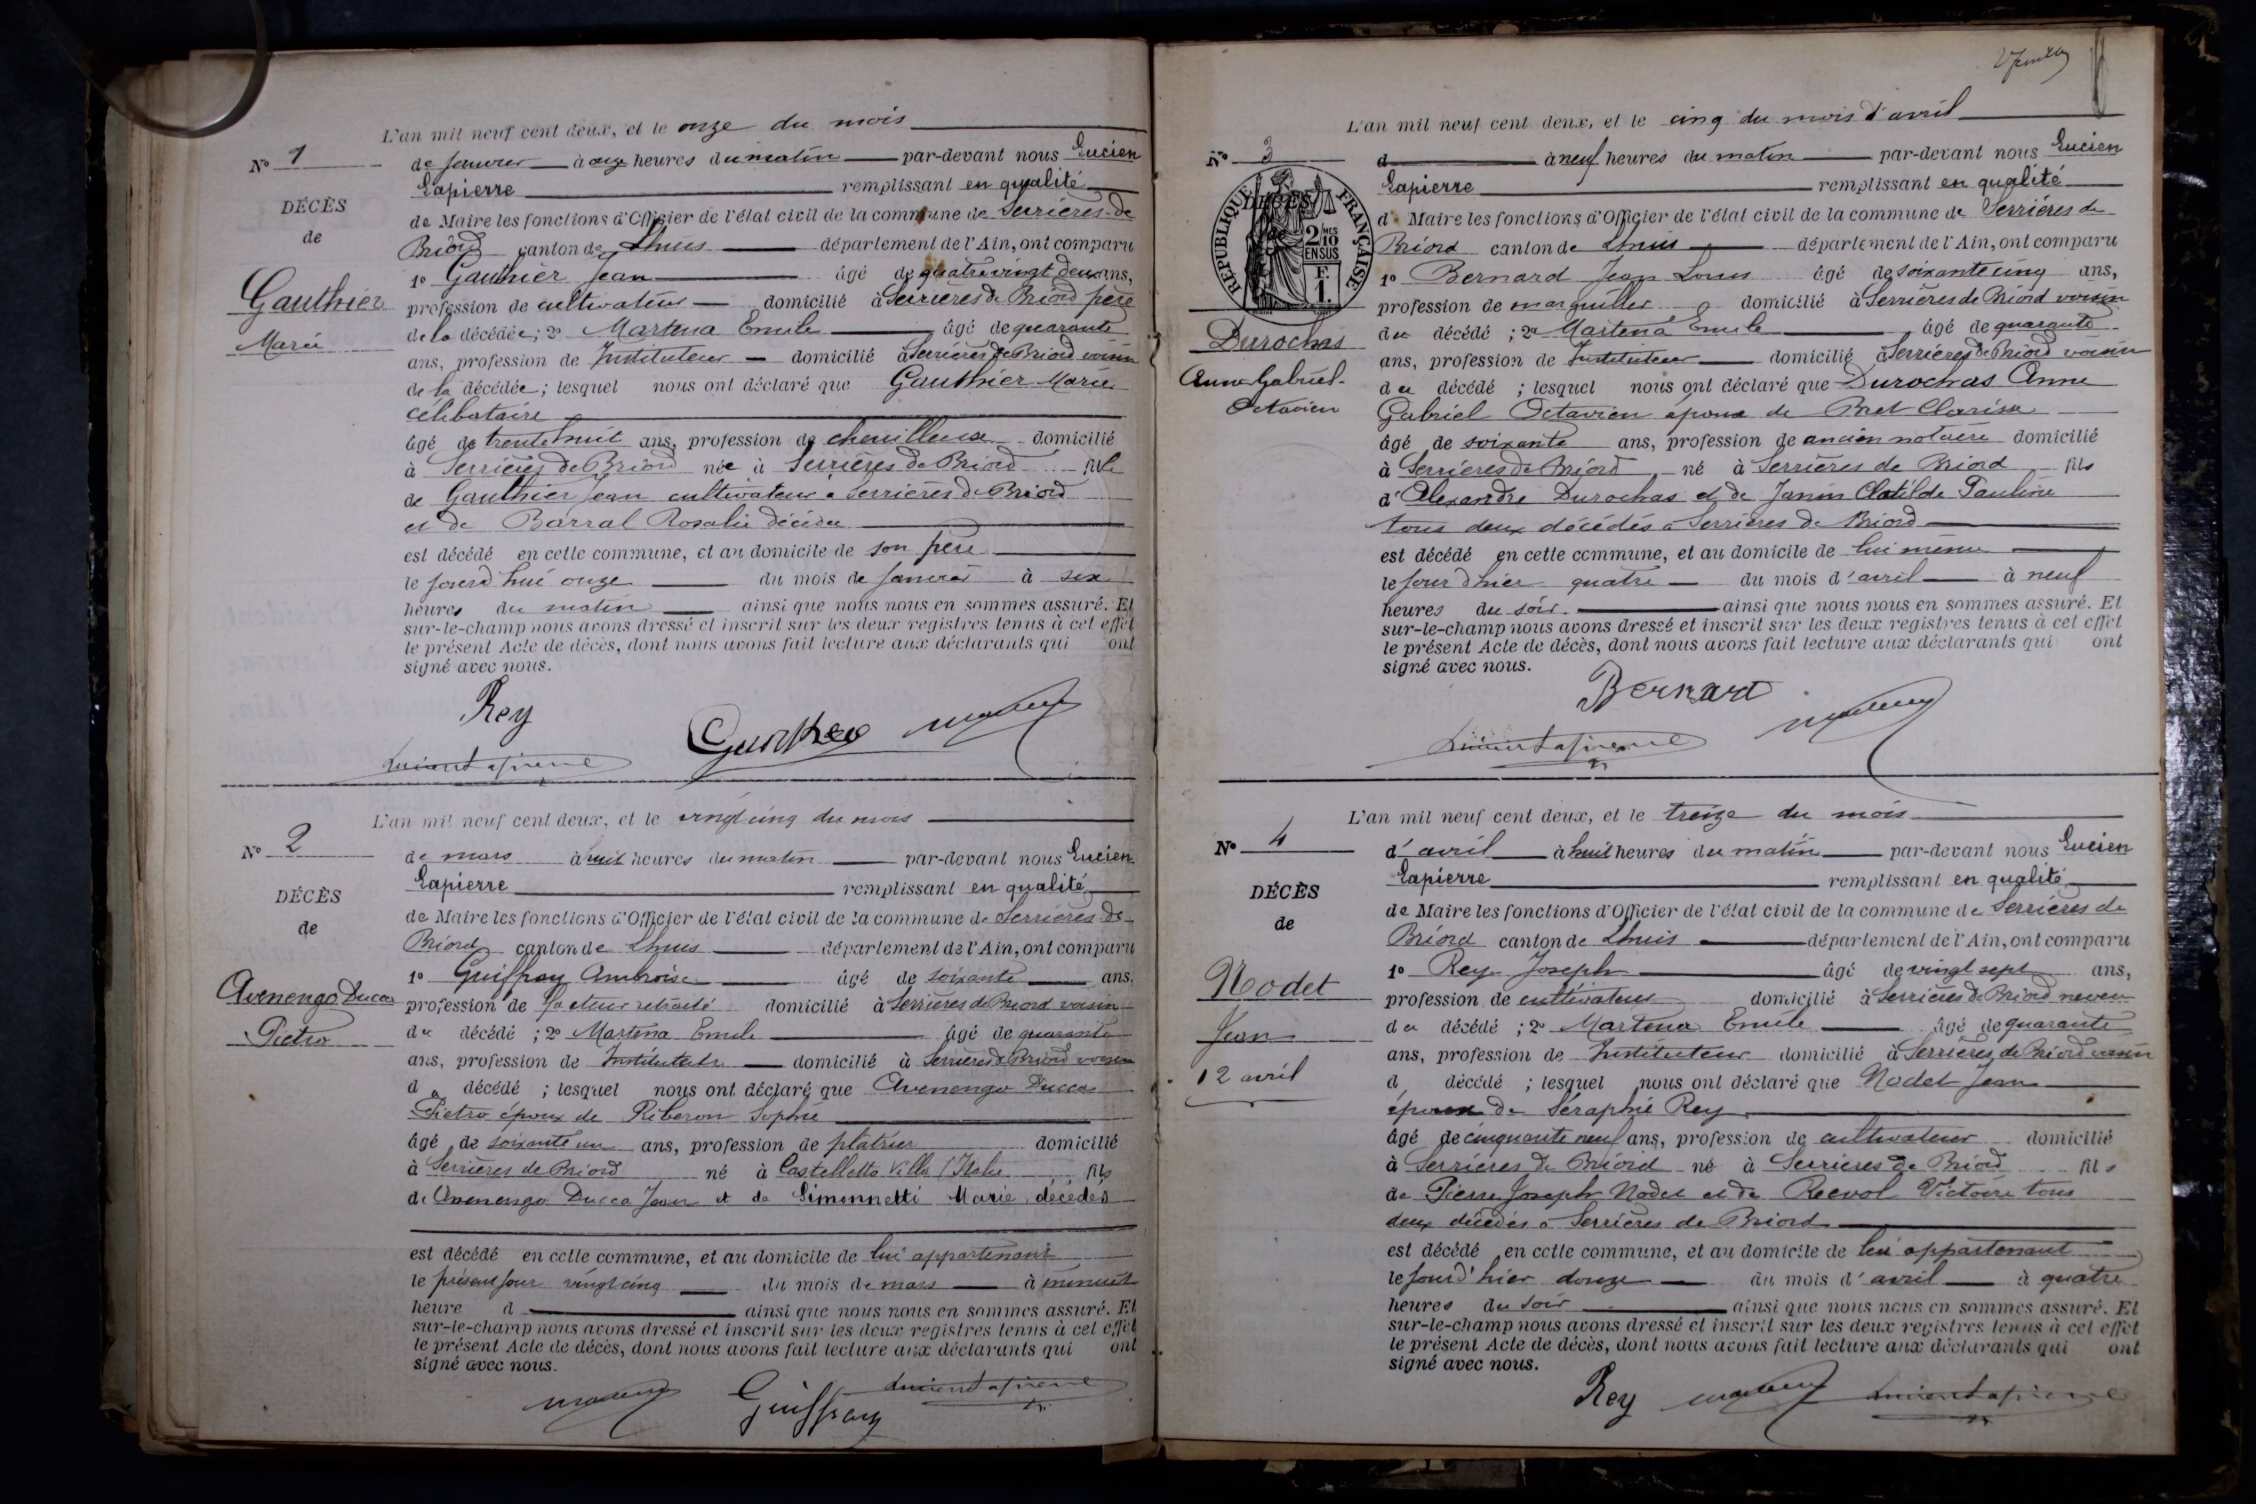 L'an mil neuf cent deux, et le onze du mois
N° 1
de Janvier à onze heures du matin par-devant nous Lucien
Lapierre remplissant en qualité
DÉCÈS
de
Gauthier
Marie
de Maire les fonctions d'Officier de l'état civil de la commune de Serrières-de
Briord canton de Lhuis département de l'Ain, ont comparu
1° Gauthier Jean âgé de quatre vingt deux ans,
profession de cultivateur domicilié à Serrières de Briord père
de la décédée; 2° Martena Emile âgé de quarante
ans, profession de Instituteur domicilié à Serrières de Briord voisin
de la décédée; lesquel nous ont déclaré que Gauthier Marie
célibataire
âgé de trente huit ans, profession de domicilié
à Serrières de Briord née à Serrières de Briord fille
de Gauthier Jean cultivateur à Serrières de Briord
et de Barral Rosalie décédée
est décédé en cette commune, et au domicile de son père
le jourd'hui onze du mois de Janvier à six
heures du matin ainsi que nous nous en sommes assuré. Et
sur-le-champ nous avons dressé et inscrit sur les deux registres tenus à cet effet
le présent Acte de décès, dont nous avons fait lecture aux déclarants qui ont
signé avec nous.
Rey
L'an mil neuf cent deux, et le vingt cinq du mois
N° 2
de mars à huit heures du matin par-devant nous Lucien
Lapierre remplissant en qualité
DÉCÈS
de
Avenengo Ducca
Pietro
de Maire les fonctions d'Officier de l'état civil de la commune de Serrières-de
Briord canton de Lhuis département de l'Ain, ont comparu
1° Guiffray Ambroise âgé de soixante ans,
profession de facteur retraité domicilié à Serrières de Briord voisin
du décédé; 2° Martena Emile âgé de quarante
ans, profession de Instituteur domicilié à Serrières de Briord voisin
du décédé; lesquel nous ont déclaré que Avenengo Ducca
Pietro époux de Riberon Sophie
âgé de soixante un ans, profession de plâtrier domicilié
à Serrières de Briord né à Castelletto Villa (Italie fils
de Avenengo Ducca Jean et de Simonnetti Marie décédés
est décédé en cette commune, et au domicile de lui appartenant
le présent jour vingt cinq du mois de mars à minuit
heure d ainsi que nous nous en sommes assuré. Et
sur-le-champ nous avons dressé et inscrit sur les deux registres tenus à cet effet
le présent Acte de décès, dont nous avons fait lecture aux déclarants qui ont
signé avec nous.
Guiffray
L'an mil neuf cent deux, et le cinq du mois d'avril
N° 3
d à neuf heures du matin par-devant nous Lucien
Lapierre remplissant en qualité
RÉPUBLIQUE FRANÇAISE
2/10 EN SUS
1 F.
DÉCÈS
de
Durochas
Anne Gabriel-
Octavien
de Maire les fonctions d'Officier de l'état civil de la commune de Serrières de
Briord canton de Lhuis département de l'Ain, ont comparu
1° Bernard Jean Louis âgé de soixante cinq ans,
profession de marguiller domicilié à Serrières de Briord voisin
du décédé; 2° Martena Emile âgé de quarante
ans, profession de Instituteur domicilié à Serrières de Briord voisin
du décédé; lesquel nous ont déclaré que Durochas Anne
Gabriel Octavien époux de Bret Clarisse
âgé de soixante ans, profession de ancien notaire domicilié
à Serrières de Briord né à Serrières de Briord fils
d'Alexandre Durochas et de Janin Clotilde Pauline
tous deux décédés à Serrières de Briord
est décédé en cette commune, et au domicile de lui même
le jour d'hier quatre du mois d'avril à neuf
heures du soir ainsi que nous nous en sommes assuré. Et
sur-le-champ nous avons dressé et inscrit sur les deux registres tenus à cet effet
le présent Acte de décès, dont nous avons fait lecture aux déclarants qui ont
signé avec nous.
Bernard
L'an mil neuf cent deux, et le treize du mois
N° 4
d'avril à huit heures du matin par-devant nous Lucien
Lapierre remplissant en qualité
DÉCÈS
de
Nodet
Jean
12 avril
de Maire les fonctions d'Officier de l'état civil de la commune de Serrières de
Briord canton de Lhuis département de l'Ain, ont comparu
1° Rey Joseph âgé de vingt sept ans,
profession de cultivateur domicilié à Serrières de Briord neveu
du décédé; 2° Martena Emile âgé de quarante
ans, profession de Instituteur domicilié à Serrières de Briord voisin
d décédé; lesquel nous ont déclaré que Nodet Jean
époux de Séraphie Rey
âgé de cinquante neuf ans, profession de cultivateur domicilié
à Serrières de Briord né à Serrières de Briord fils
de Pierre Joseph Nodet et de Reevol Victoire tous
deux décédés à Serrières de Briord
est décédé en cette commune, et au domicile de lui appartenant
le jourd'hier douze du mois d'avril à quatre
heures du soir ainsi que nous nous en sommes assuré. Et
sur-le-champ nous avons dressé et inscrit sur les deux registres tenus à cet effet
le présent Acte de décès, dont nous avons fait lecture aux déclarants qui ont
signé avec nous.
Rey